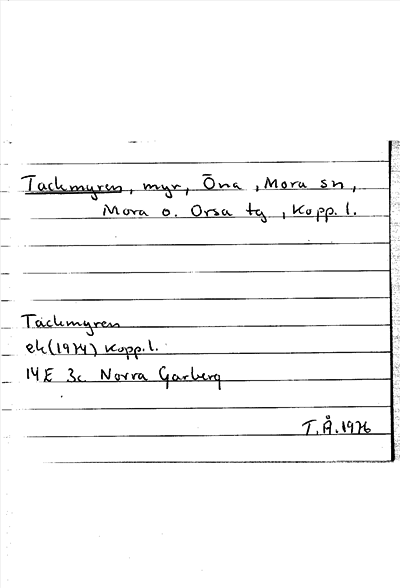 Tackmyren, myr, Öna, Mora sn,
Mora o. Orsa tg, Kopp. l.
Tackmyren
ek(1974) Kopp.l.
14E 3c Norra Garberg
T.Å.1976